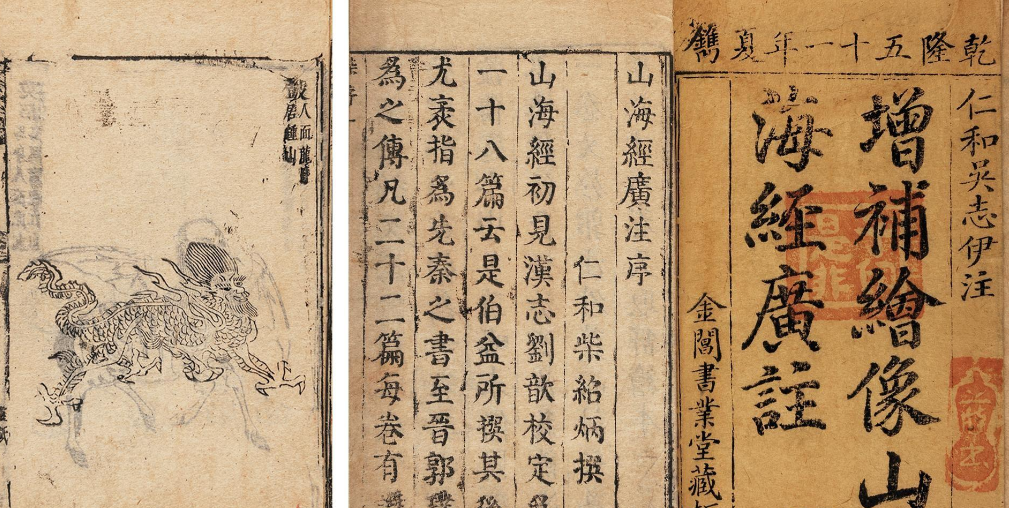 乾隆五十一年夏鐫
仁和吳志伊注
增補繪像山
海經廣註
金閶書業堂藏
山海經廣注序
仁和柴紹炳撰
山海經初見漢志劉歆校定
一十八篇云是伯益所撰其後
尤袤指爲先秦之書至晉郭璞
爲之傳凡二十二篇每卷有
鼓人面龍身
居鍾山